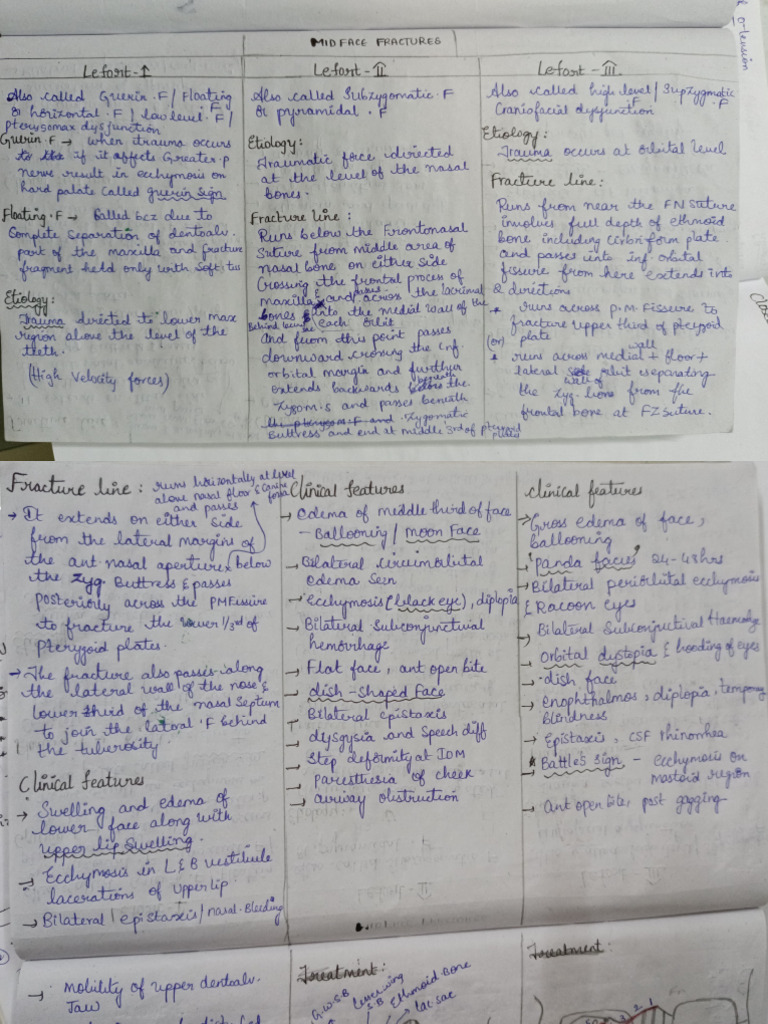 o-tension
MIDFACE FRACTURES
Lefort-I
Also called Guerin.F/Floating
or horizontal.F/low level.F/
pterygomax dysjunction
Guerin.F → when trauma occurs
to the if it affects Greater.p
nerve result in echymosis on
hard palate called guerin sign
Floating.F → Called bcz due to
Complete separation of dentoalv.
part of the maxilla and fracture
fragment held only with soft.tiss
Etiology:
Trauma directed to lower max
region above the level of the
teeth.
(High Velocity forces)
Lefort-II
Also called Subzygomatic.F
or pyramidal.F
Etiology:
Traumatic force directed
at the level of the nasal
bones.
Fracture line:
Runs below the Frontonasal
Suture from middle area of
nasal bone on either side
Crossing the frontal proces of
maxilla and across the lacrimal
bones & into the medial wall of the
each orbit
And from this point passes
downward crossing the inf.
orbital margin and further
extends backwards beneath the
zygom.s and passes beneath
the pterygom.F and zygomatic
Buttress and end at middle 3rd of pterygoid
plates
Lefort-III
Also called high level/Supzygmatic
.F
Craniofacial dysfunction
Etiology:
Trauma occurs at orbital level
Fracture line:
Runs from near the FN suture
involves full depth of ethmoid
bone including cirbriform plate
and passes into inf orbital
fissure from here extends into
2 directions
→ runs across P.M.Fissure to
fracture upper third of pterygoid
(or) plate
→ runs across medial wall + floor +
lateral side orbit separating
wall of
the zyg. bone from the
frontal bone at FZ Suture.
Fracture line: runs horizontally at level
above nasal floor & Canine
and passes fossa
→ It extends on either side
from the lateral margins of
the ant nasal aperture below
the zyg Buttress & passes
posteriorly across the PMFissure
to fracture the lower 1/3rd of
Pterygoid plates.
→ The fracture also passes along
the lateral wall of the nose &
lower third of the nasal septum
to join the lateral.F behind
the tuberosity.
Clinical features
→ Swelling and edema of
lower face along with
upper lip swelling.
→ Ecchymosis in L&B vestibule
lacerations of upper lip
→ Bilateral epistaxis/nasal.Bleeding
Clinical features
→ edema of middle third of face
- Ballooning/moon Face
→ Bilateral circumorbital
edema seen
→ Ecchymosis (black eye), diplopia
→ Bilateral Subconjunctual
hemorrhage
→ Flat face, ant open bite
→ dish-shaped Face
→ Bilateral epistaxis
→ dysgysia and Speech diff
→ Step deformity at IOM
→ Paresthesia of cheek
→ airway obstruction
Clinical features
→ Gross edema of face,
ballooning
→ 'Panda facies' 24-48hrs
→ Bilateral periorbital ecchymosis
& Racoon eyes
→ Bilateral Subconjuctival Haemorhge
→ Orbital dystopia & hooding of eyes
→ dish face
→ enophthalmos, diplopia, temporary
blindness
→ Epistaxis, CSF rhinorrhea
→ Battle's sign - ecchymosis on
mastoid region
→ Ant open bite, post gagging
→ Mobility of upper dentoalv.
Jaw
Treatment:
G.W.S.B
S.B
Ethmoid Bone
lac sac
Treatment: